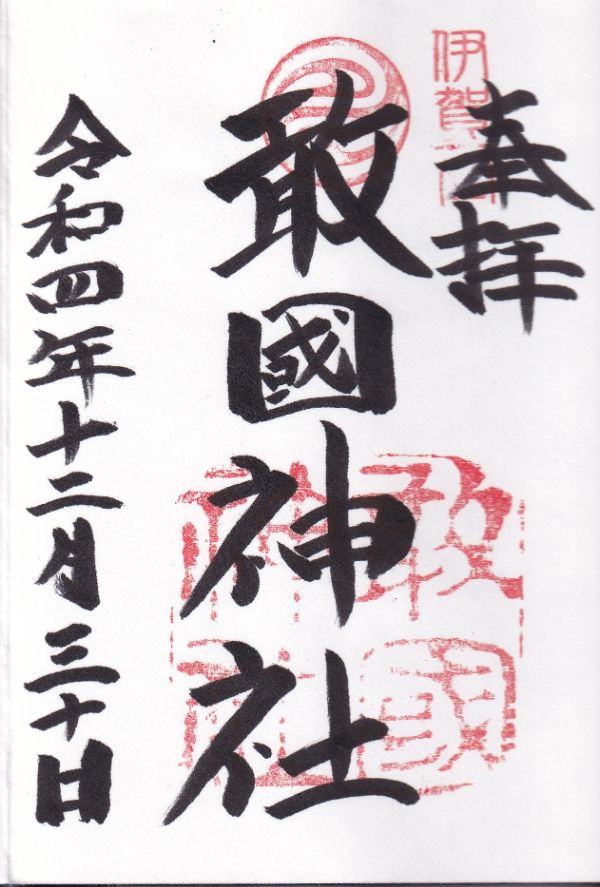 奉拝
敢國神社
令和四年十二月三十日
敢國
神社